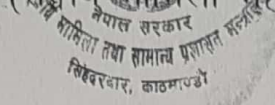 नेपाल सरकार
मामिला तथा सामान्य प्रशासन मन्त्रालय
सिंहदरबार, काठमाण्डौ